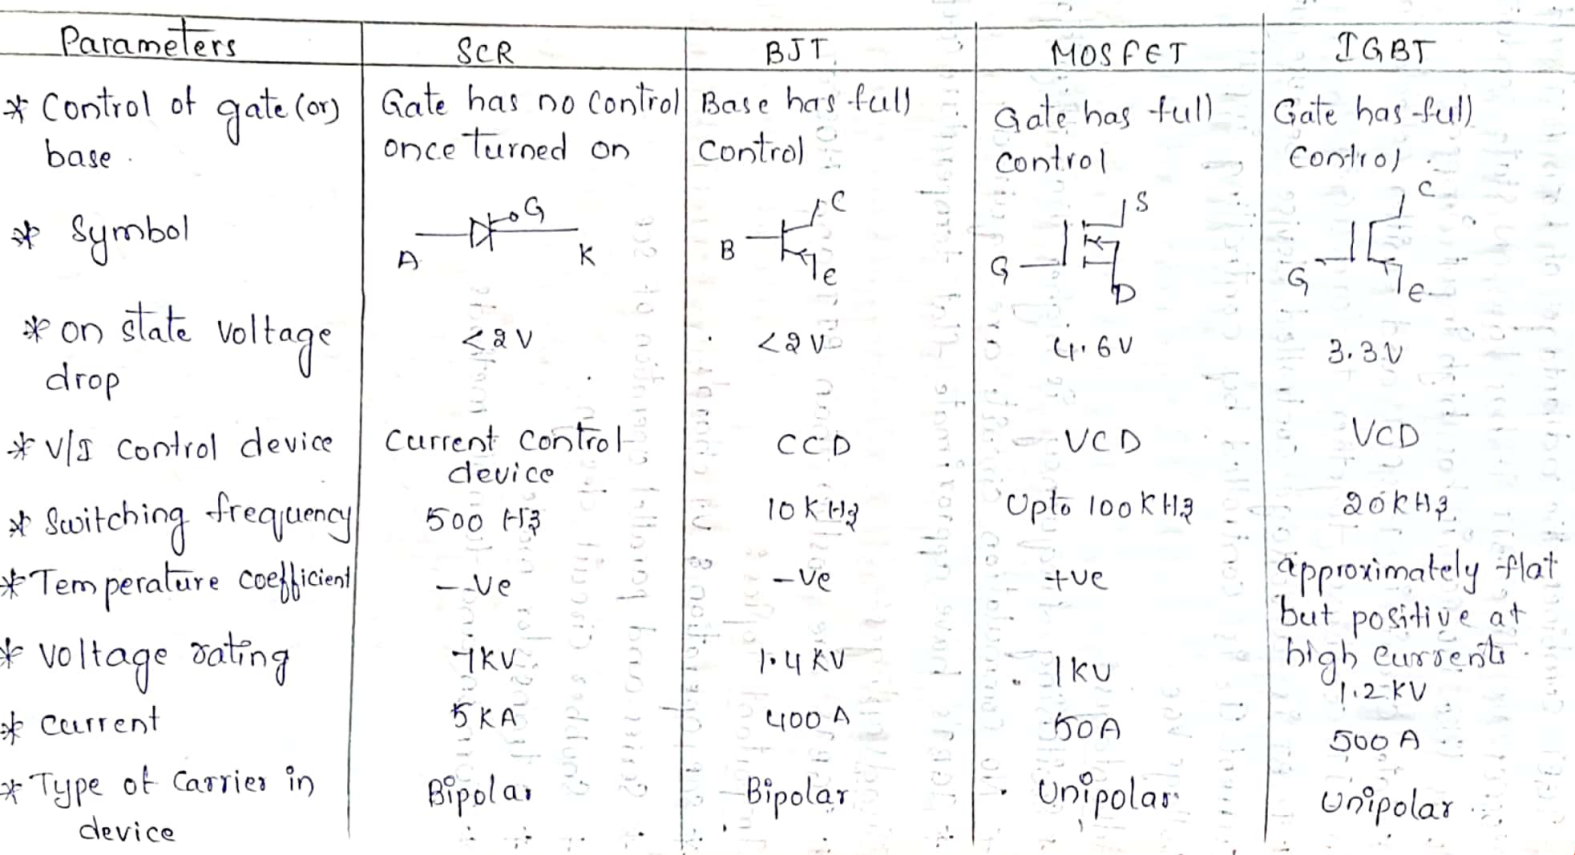 Parameters SCR BJT MOSFET IGBT
* Control of gate (or) base. Gate has no control once turned on Base has full control Gate has full control Gate has full control
* Symbol A G K B C e G S D G C e
* on state voltage drop <2V <2V 4.6V 3.3V
* V/I control device Current control device CCD VCD VCD
* Switching frequency 500 Hz 10 KHz Upto 100KHz 20KHz
* Temperature coefficient -Ve -Ve +ve approximately flat but positive at high currents.
* voltage rating 1.4 KV 1KV 1.2 KV
* current 5KA 400 A 50A 500 A
* Type of Carrier in device Bipolar Bipolar Unipolar Unipolar